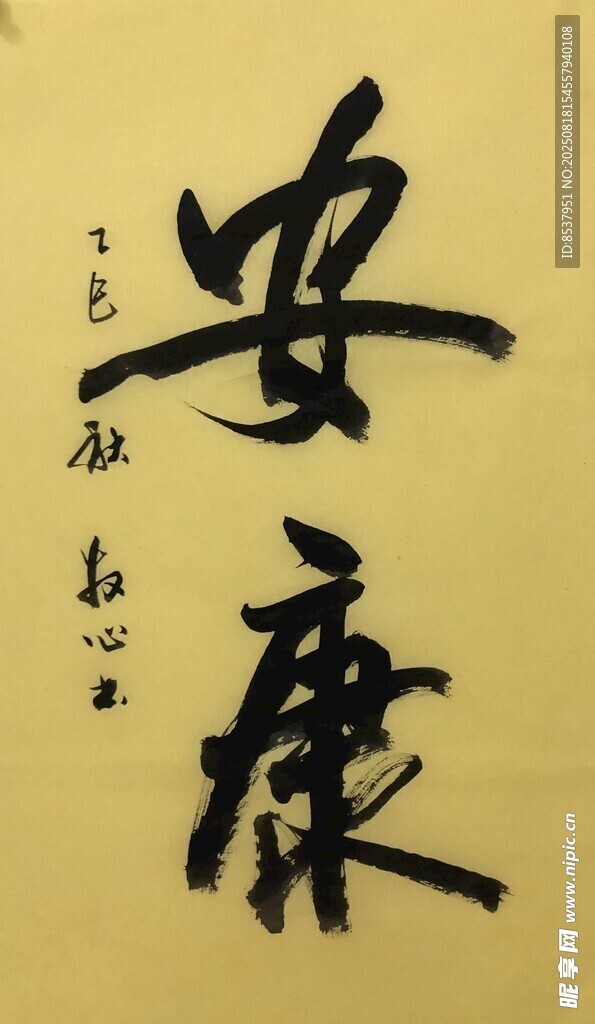 安康
乙巳秋 牧心书
ID:8537951 NO:20250818154557940108
昵享网 www.nipic.cn